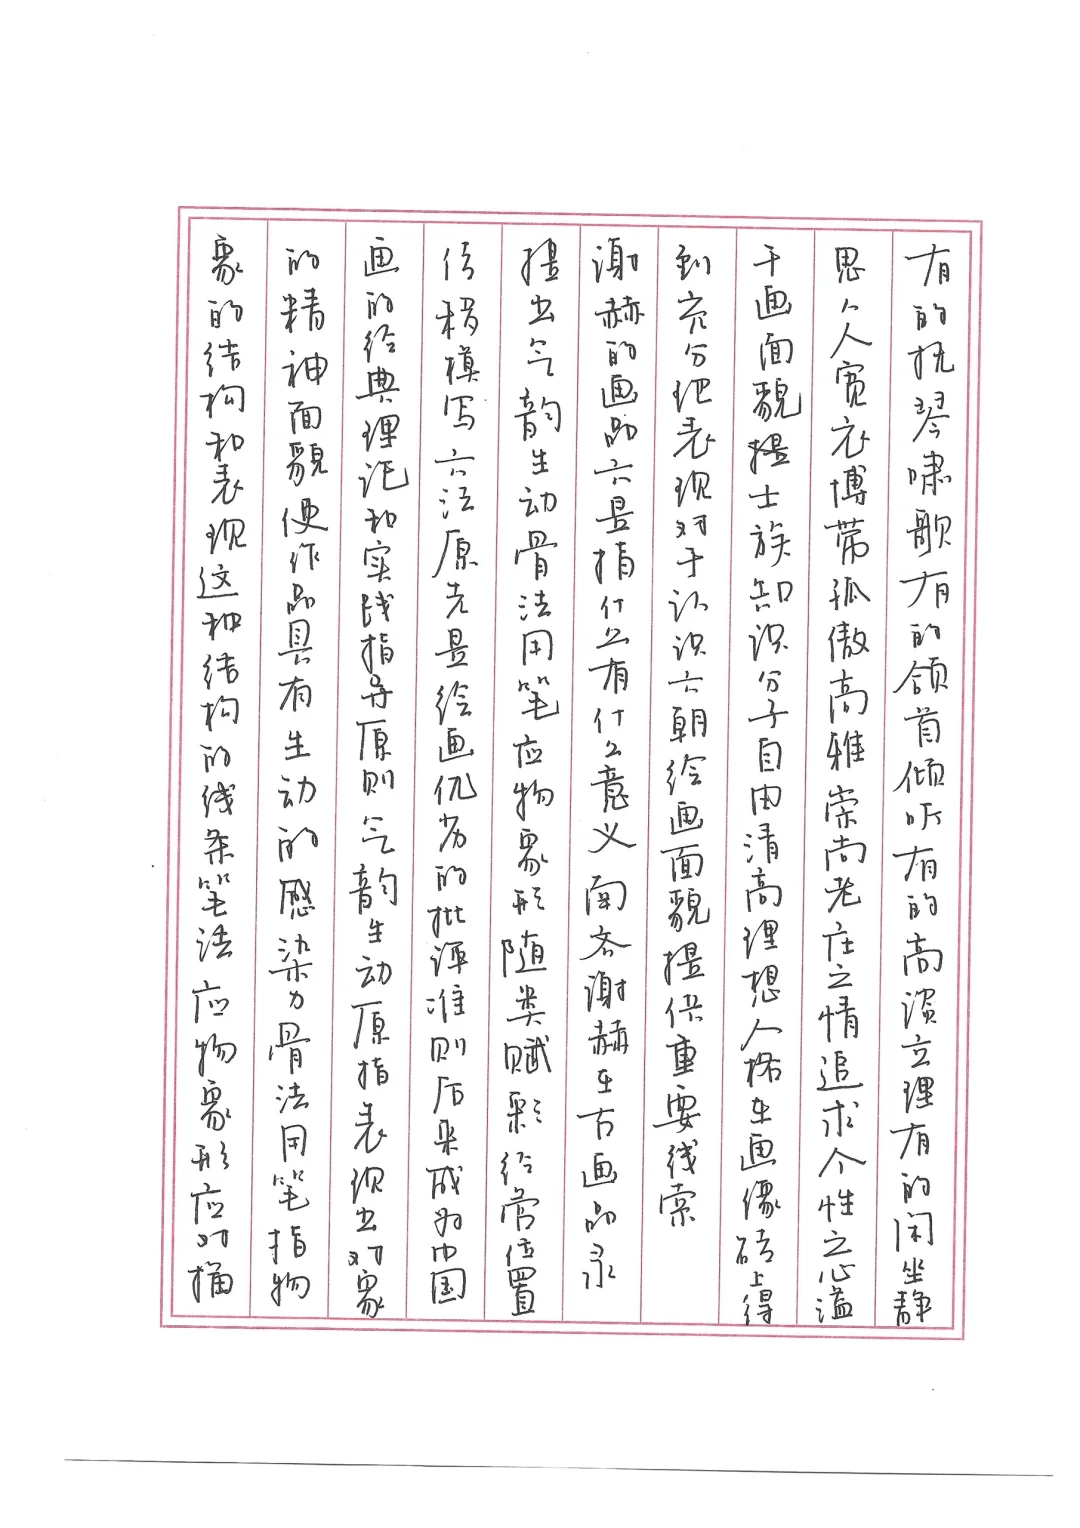 有的抚琴啸歌有的颔首倾听有的高谈立理有的闲坐静
思人人宽衣博带孤傲高雅崇尚老庄之情追求个性之心溢
于画面貌提士族知识分子自由清高理想人格在画像砖上得
到充分地表现对于认识六朝绘画面貌提供重要线索
谢赫的画品六是指什么有什么意义南齐谢赫在古画品录
提出气韵生动骨法用笔应物象形随类赋彩经营位置
传移模写六法原先是绘画优劣的批评准则后来成为中国
画的经典理论和实践指导原则气韵生动原指表现出对象
的精神面貌使作品具有生动的感染力骨法用笔指物
象的结构和表现这种结构的线条笔法应物象形应对描